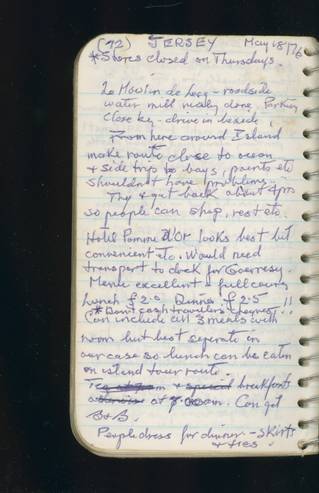 (92) JERSEY May 18/76
*Stores closed on Thursdays.
Le Moulin de Lecq - roadside
water mill nicely done. Parking
close by - drive in beside.
From here around Island
make route close to ocean
+ side trip to bays, points etc
Shouldn't have problems.
Try + get back about 4pm
so people can shop, rest etc.
Hotel Pomme D'Or looks best bet
convenient etc. Would need
transport to dock for Guernsey.
Menu excellent + full course
Lunch £2.0 Dinner £2.5 !!
(*Don't cash travellers cheques
Can include all 3 meals with
room but best seperate in
our case so lunch can be eaten
on island tour route.
+ special breakfasts
at Can get
B+B.
People dress for dinner - skirts
+ ties.